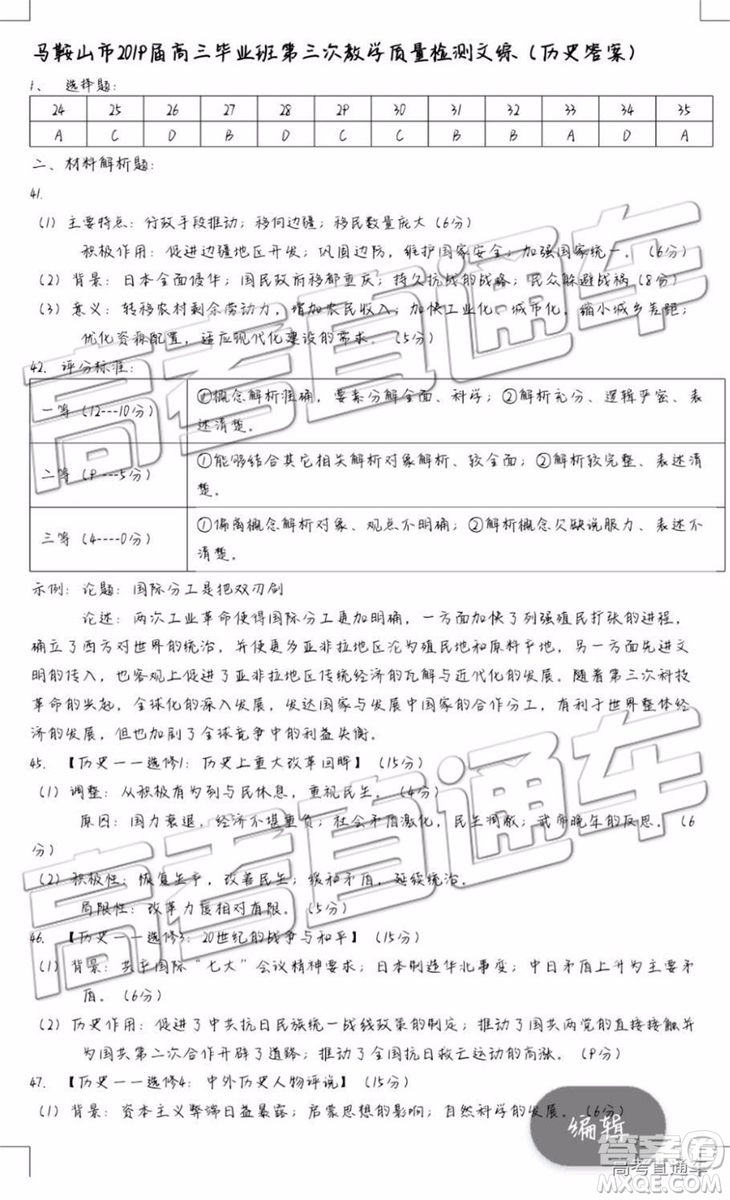 马鞍山市2019届高三毕业班第三次教学质量检测文综（历史答案）
1、 选择题：
24 25 26 27 28 29 30 31 32 33 34 35
A C D B D C C B B A D A
二、材料解析题：
41.
（1）主要特点：行政手段推动；移向边疆；移民数量庞大（6分）
积极作用：促进边疆地区开发；巩固边防，维护国家安全；加强国家统一。（6分）
（2）背景：日本全面侵华；国民政府移都重庆；持久抗战的战略；民众躲避战祸（8分）
（3）意义：转移农村剩余劳动力，增加农民收入；加快工业化、城市化，缩小城乡差距；
优化资源配置，适应现代化建设的需求。（5分）
42. 评分标准：
一等（12---10分） ①概念解析准确，要素分解全面、科学；②解析充分、逻辑严密、表
述清楚。
二等（9---5分） ①能够结合其它相关解析对象解析、较全面；②解析较完整、表述清
楚。
三等（4----0分） ①偏离概念解析对象、观点不明确；②解析概念欠缺说服力、表述不
清楚。
示例：论题：国际分工是把双刃剑
论述：两次工业革命使得国际分工更加明确，一方面加快了列强殖民扩张的进程，
确立了西方对世界的统治，并使更多亚非拉地区沦为殖民地和原料产地，另一方面先进文
明的传入，也客观上促进了亚非拉地区传统经济的瓦解与近代化的发展。随着第三次科技
革命的兴起，全球化的深入发展，发达国家与发展中国家的合作分工，有利于世界整体经
济的发展，但也加剧了全球竞争中的利益失衡。
45. 【历史——选修1：历史上重大改革回眸】（15分）
（1）调整：从积极有为到与民休息，重视民生。（4分）
原因：国力衰退，经济不堪重负；社会矛盾激化，民生凋敝；武帝晚年的反思。（6
分）
（2）积极性：恢复生产，改善民生；缓和矛盾，延续统治。
局限性：改革力度相对有限。（5分）
46. 【历史——选修3：20世纪的战争与和平】（15分）
（1）背景：共产国际“七大”会议精神要求；日本制造华北事变；中日矛盾上升为主要矛
盾。（6分）
（2）历史作用：促进了中共抗日民族统一战线政策的制定；推动了国共两党的直接接触并
为国共第二次合作开辟了道路；推动了全国抗日救亡运动的高涨。（9分）
47. 【历史——选修4：中外历史人物评说】（15分）
（1）背景：资本主义弊端日益暴露；启蒙思想的影响；自然科学的发展。（6分）
编辑
高考直通车
高考直通车
高考直通车